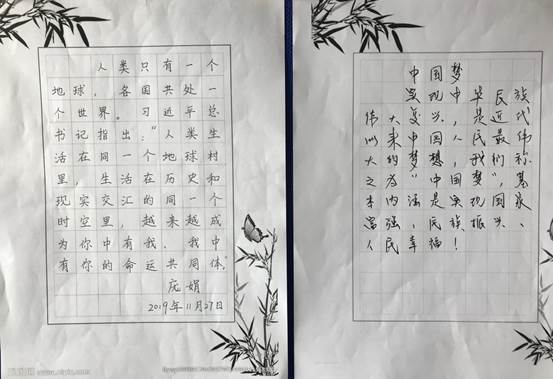 人类只有一个
地球,各国共处一
个世界。习近平总
书记指出:"人类生
活在同一个地球村
里,生活在历史和
现实交汇的同一个
时空里,越来越成
为你中有我、我中
有你的命运共同体。
庞娟
2019年11月27日
中国梦
实现中华民族
伟大复兴,是近代
以来中国人民最伟
大的梦想,我们称
之为"中国梦",基
本内涵是实现国家
富强、民族振兴、
人民幸福!